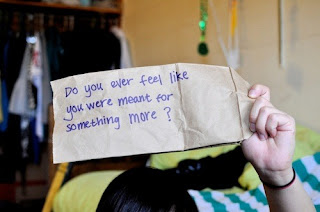 Do you ever feel like
you were meant for
something more ?